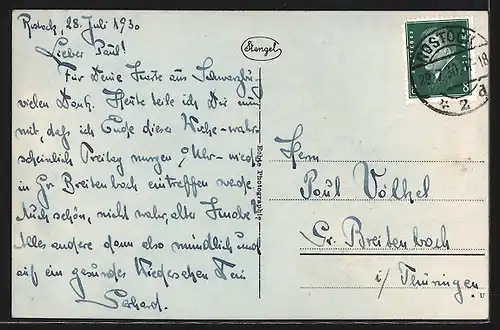 Rostock, 28. Juli 1930
Lieber Paul!
Für Deine Karte aus Schwarzburg
vielen Dank. Heute teile ich Dir nun
mit, daß ich Ende dieser Woche - wahr-
scheinlich Freitag morgen 9 Uhr - wieder
in Gr. Breitenbach eintreffen werde.
Auch schön, nicht wahr, alter Knabe?
Alles andere dann also mündlich und
auf ein gesundes Wiedersehen Dein
Gerhard.
Stengel
Echte Photographie
ROSTOCK
Herrn
Paul Völkel
Gr. Breitenbach
i/ Thüringen.